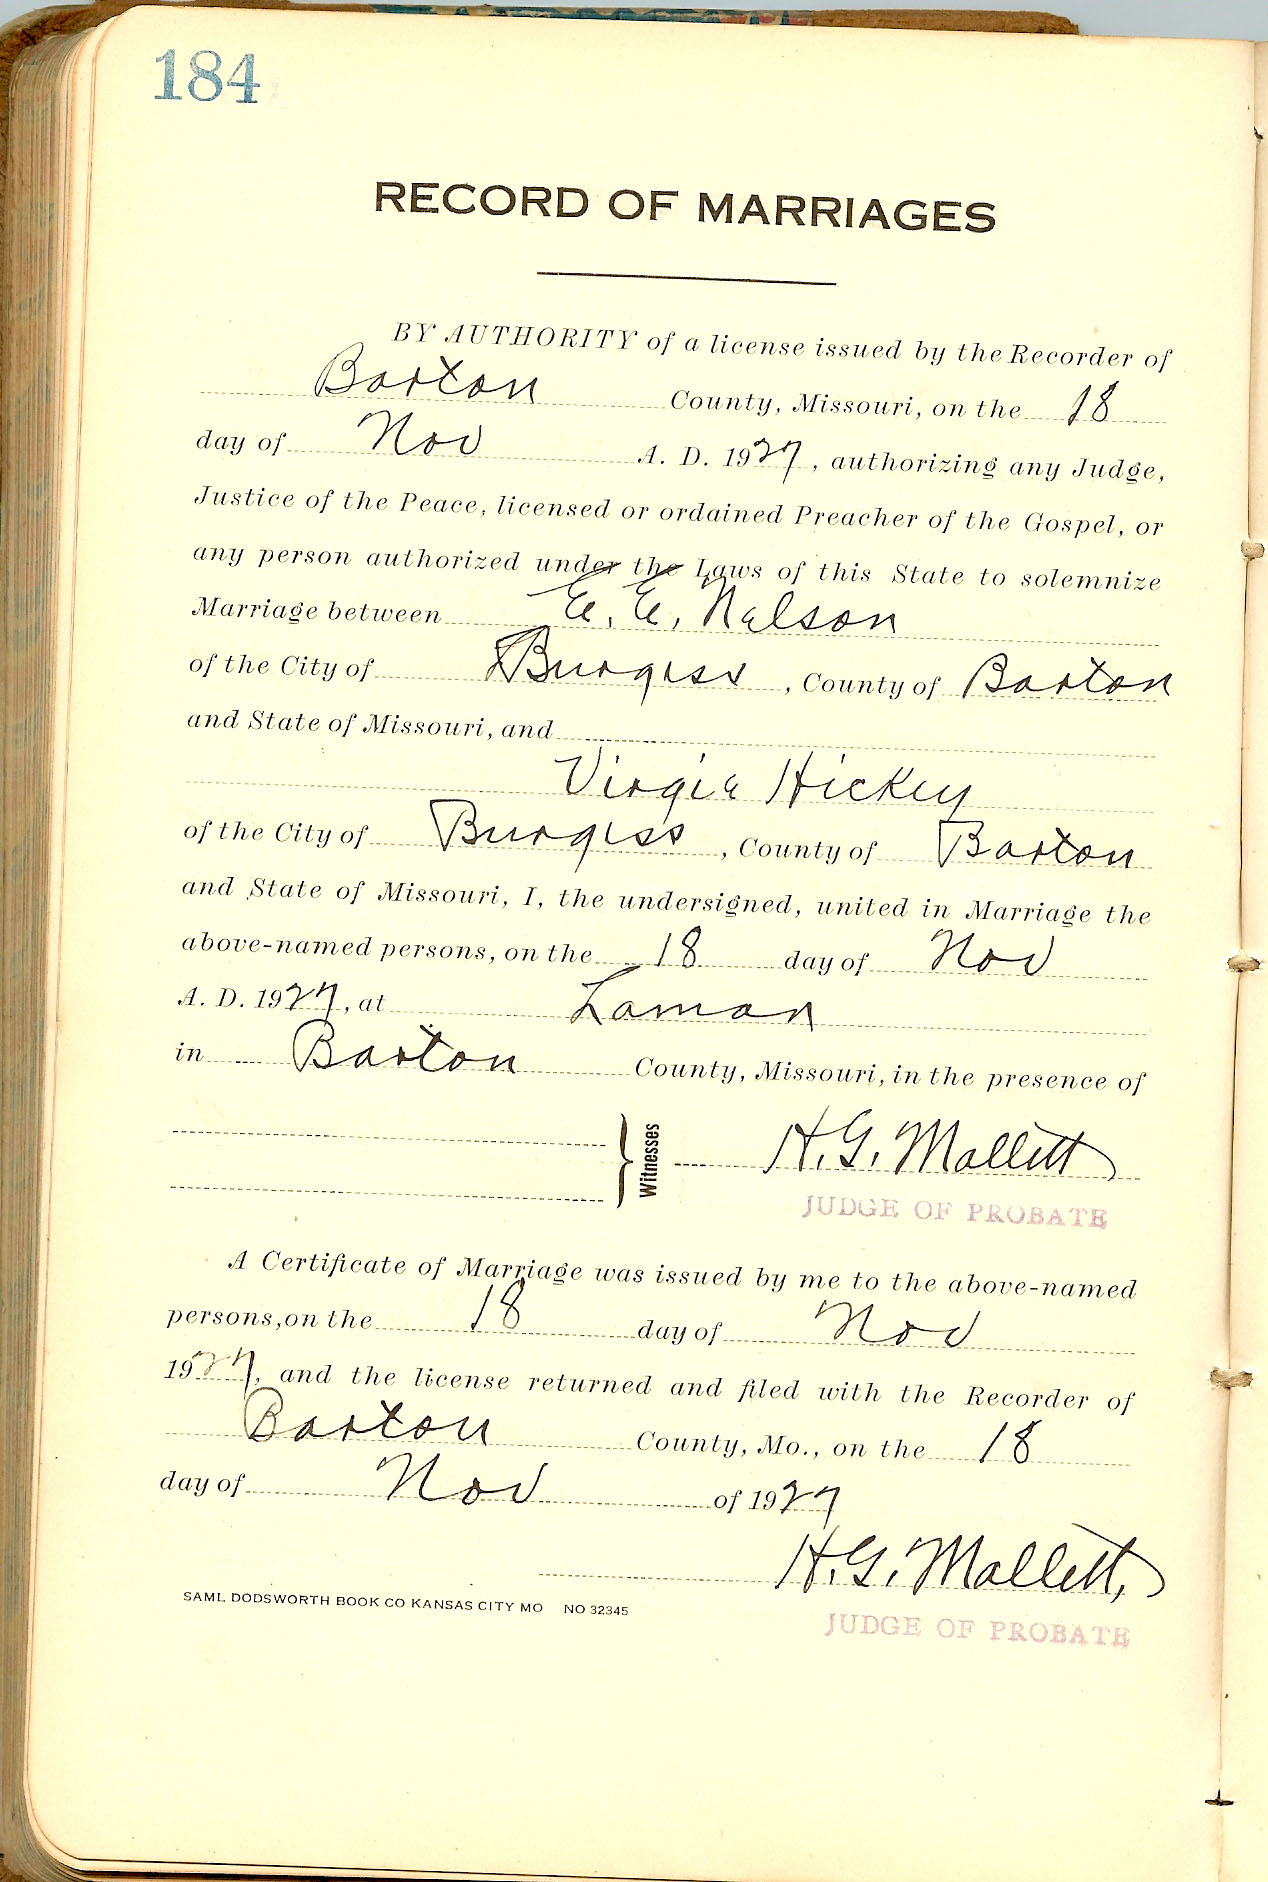 184
RECORD OF MARRIAGES
BY AUTHORITY of a license issued by the Recorder of
Barton County, Missouri, on the 18
day of Nov A. D. 1927, authorizing any Judge,
Justice of the Peace, licensed or ordained Preacher of the Gospel, or
any person authorized under the Laws of this State to solemnize
Marriage between E. E. Nelson
of the City of Burgess, County of Barton
and State of Missouri, and
Virgie Hickey
of the City of Burgess, County of Barton
and State of Missouri, I, the undersigned, united in Marriage the
above-named persons, on the 18 day of Nov
A. D. 1927, at Lamar
in Barton County, Missouri, in the presence of
Witnesses H. G. Mallett
JUDGE OF PROBATE
A Certificate of Marriage was issued by me to the above-named
persons, on the 18 day of Nov
1927, and the license returned and filed with the Recorder of
Barton County, Mo., on the 18
day of Nov of 1927
H. G. Mallett,
SAML DODSWORTH BOOK CO KANSAS CITY MO NO 32345
JUDGE OF PROBATE